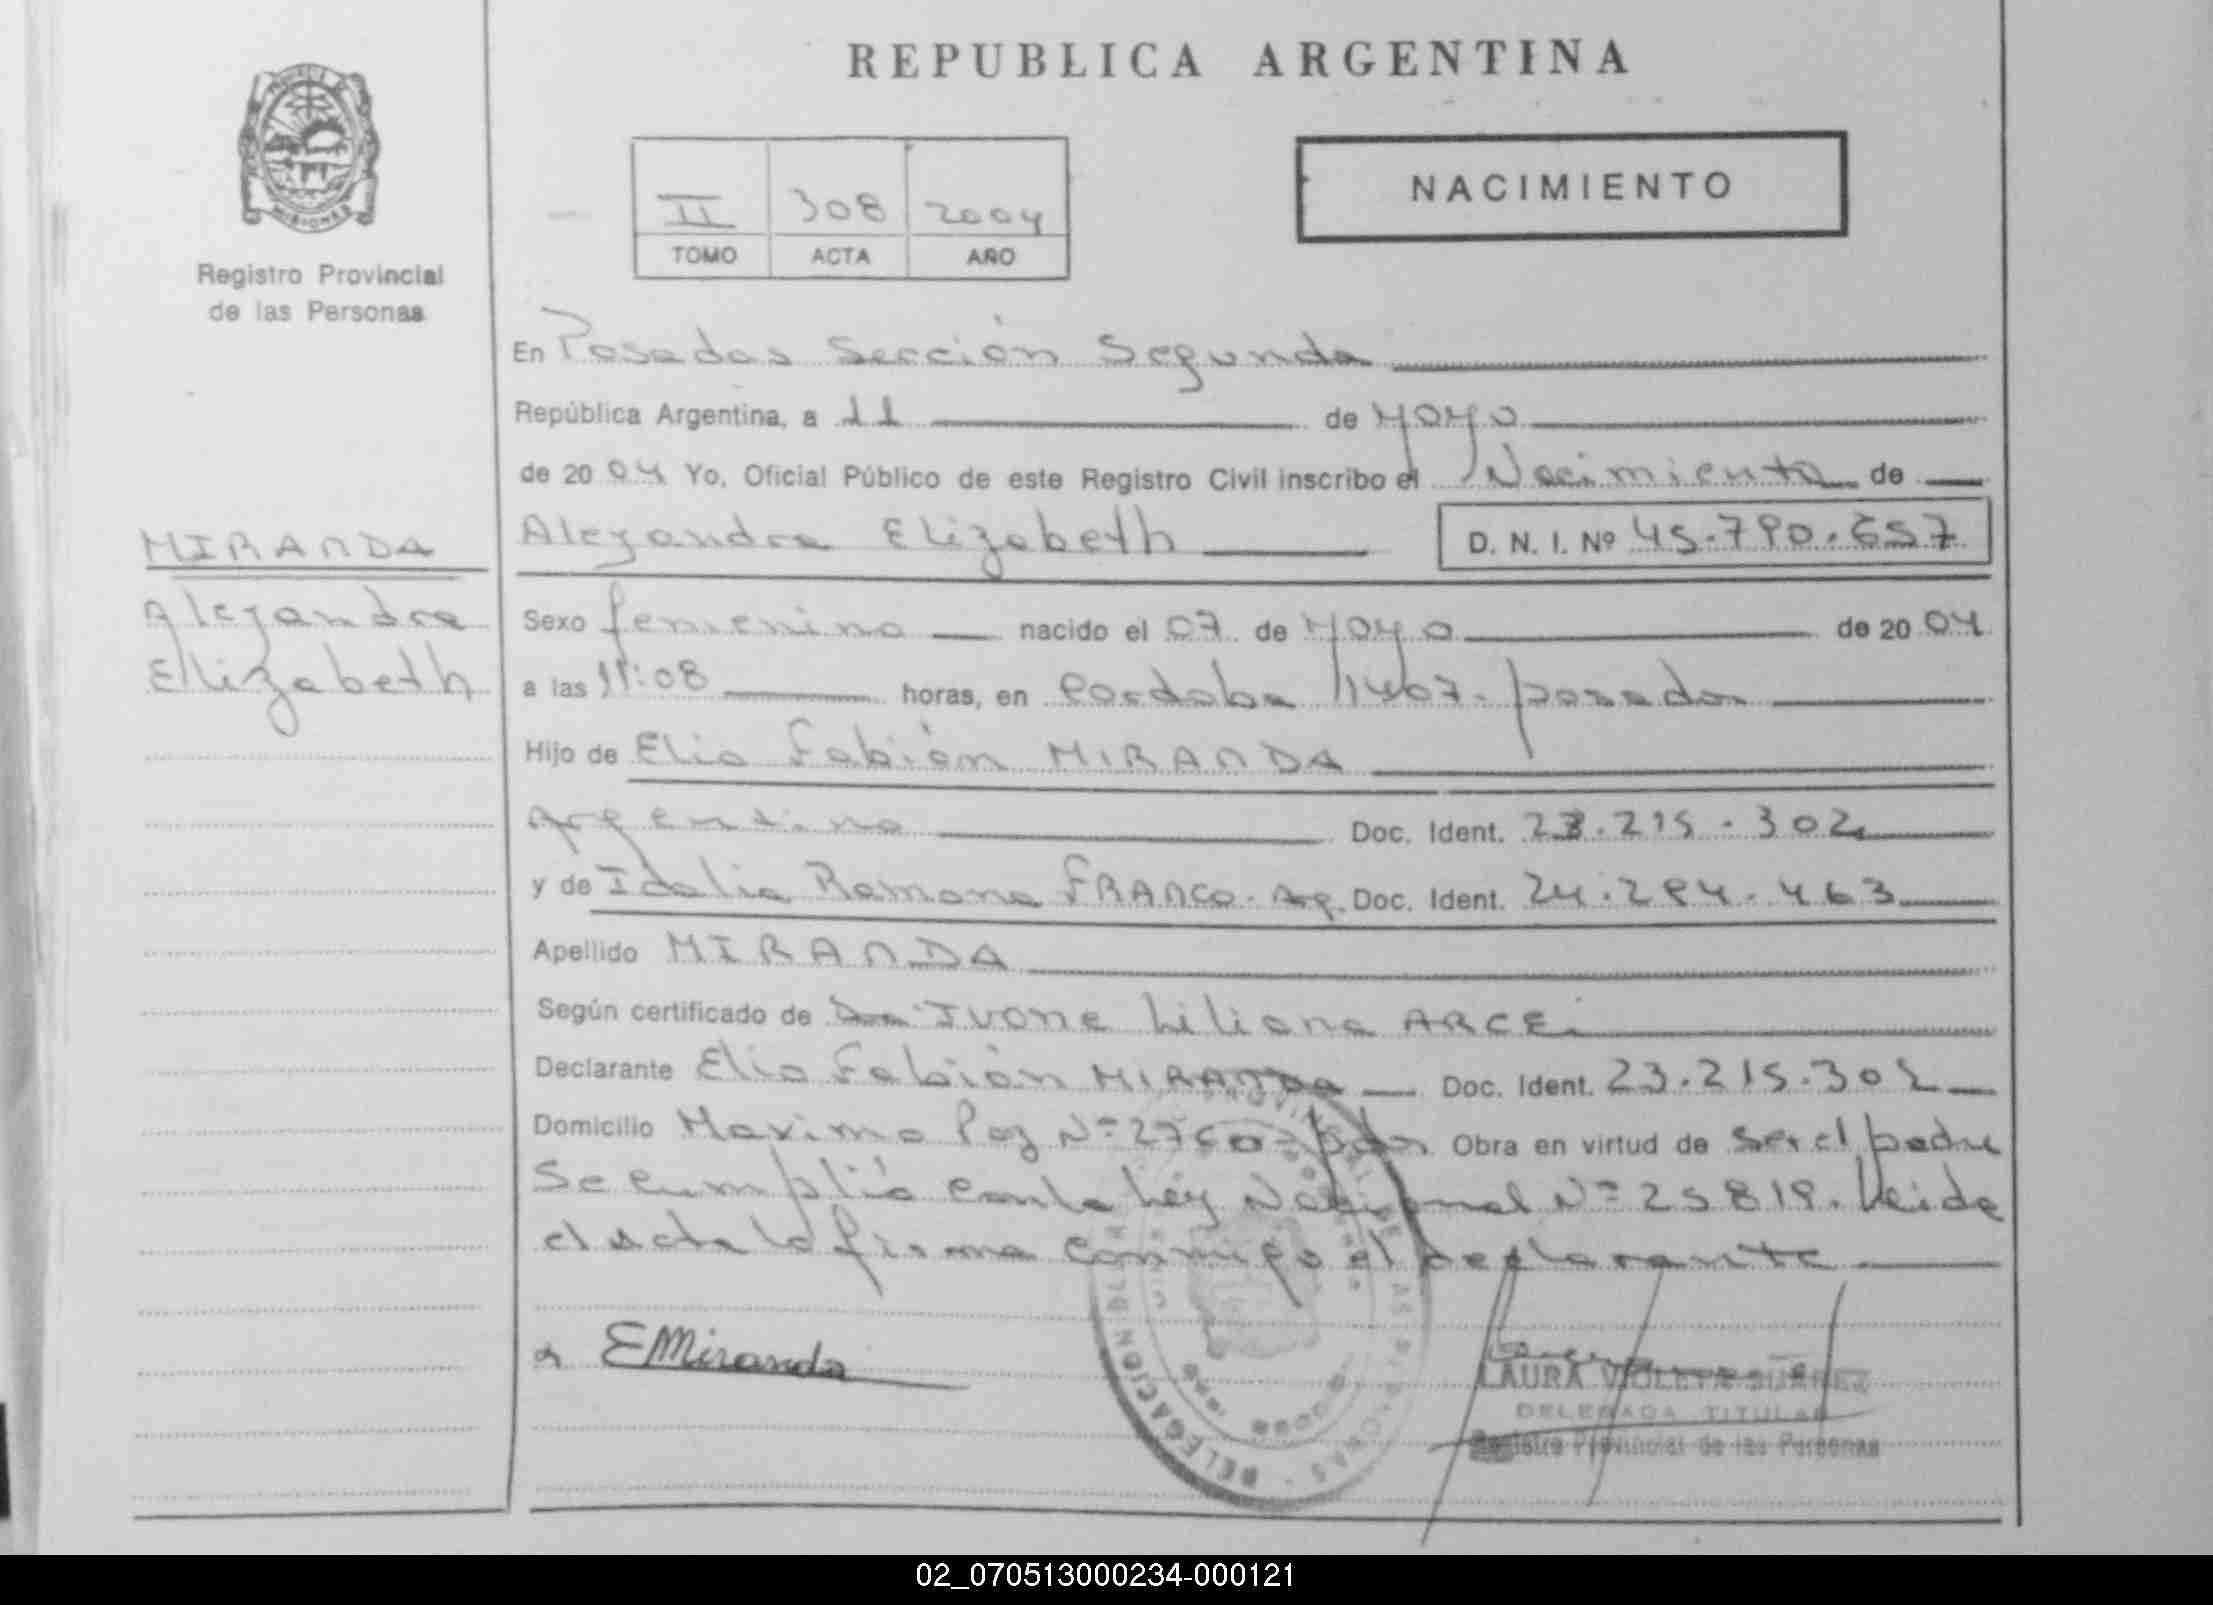 REPUBLICA ARGENTINA
MISIONES
Registro Provincial
de las Personas
II 308 2004
TOMO ACTA AÑO
NACIMIENTO
En Posadas Sección Segunda
República Argentina, a 11 de Mayo
de 2004 Yo, Oficial Público de este Registro Civil inscribo el Nacimiento de
MIRANDA
Alejandra
Elizabeth
Alejandra Elizabeth D. N. I. Nº 45.790.657
Sexo femenino nacido el 07 de Mayo de 2004
a las 11:08 horas, en Cordoba 1467. posadas
Hijo de Elio Fabián MIRANDA
Argentino Doc. Ident. 23.215.302
y de Idalia Ramona FRANCO. Arg. Doc. Ident. 24.294.463
Apellido MIRANDA
Según certificado de Dra. Ivone Liliana ARCE.
Declarante Elio Fabián MIRANDA Doc. Ident. 23.215.302
Domicilio Maximo Paz Nº 2760 - Pdas Obra en virtud de ser el padre
Se cumplió con la Ley Nacional Nº 25819. Leida
el acta la firma conmigo el declarante
EMiranda
LAURA VIOLETA SUAREZ
DELEGADA TITULAR
Registro Provincial de las Personas
02_070513000234-000121